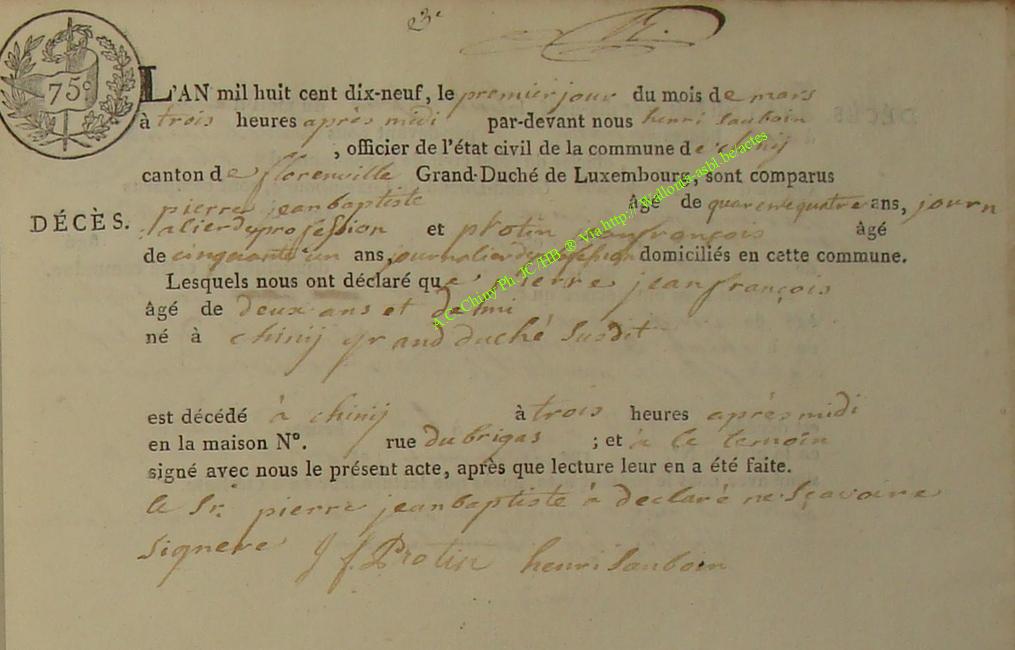 3e
75c
L'AN mil huit cent dix-neuf, le premier jour du mois de mars
à trois heures après midi par-devant nous henri Sauboin
, officier de l'état civil de la commune de chinÿ
canton de florenville Grand-Duché de Luxembourg, sont comparus
pierre jean baptiste âgé de quarente quatre ans, journ
DÉCÈS.
alier de profession et protin jean françois âgé
de cinquante un ans, journalier de profession domiciliés en cette commune.
Lesquels nous ont déclaré que pierre jean françois
âgé de deux ans et demi
né à chinÿ grand duché Susdit
est décédé à chinÿ à trois heures après midi
en la maison N°. rue du brigas ; et à le temoin
signé avec nous le présent acte, après que lecture leur en a été faite.
le Sr. pierre jean baptiste à declaré ne Sçavoire
Signere J f Protin henri Sauboin
A.C. Chiny Ph. JC /HB ® Via http://Wallonia-asbl.be/actes